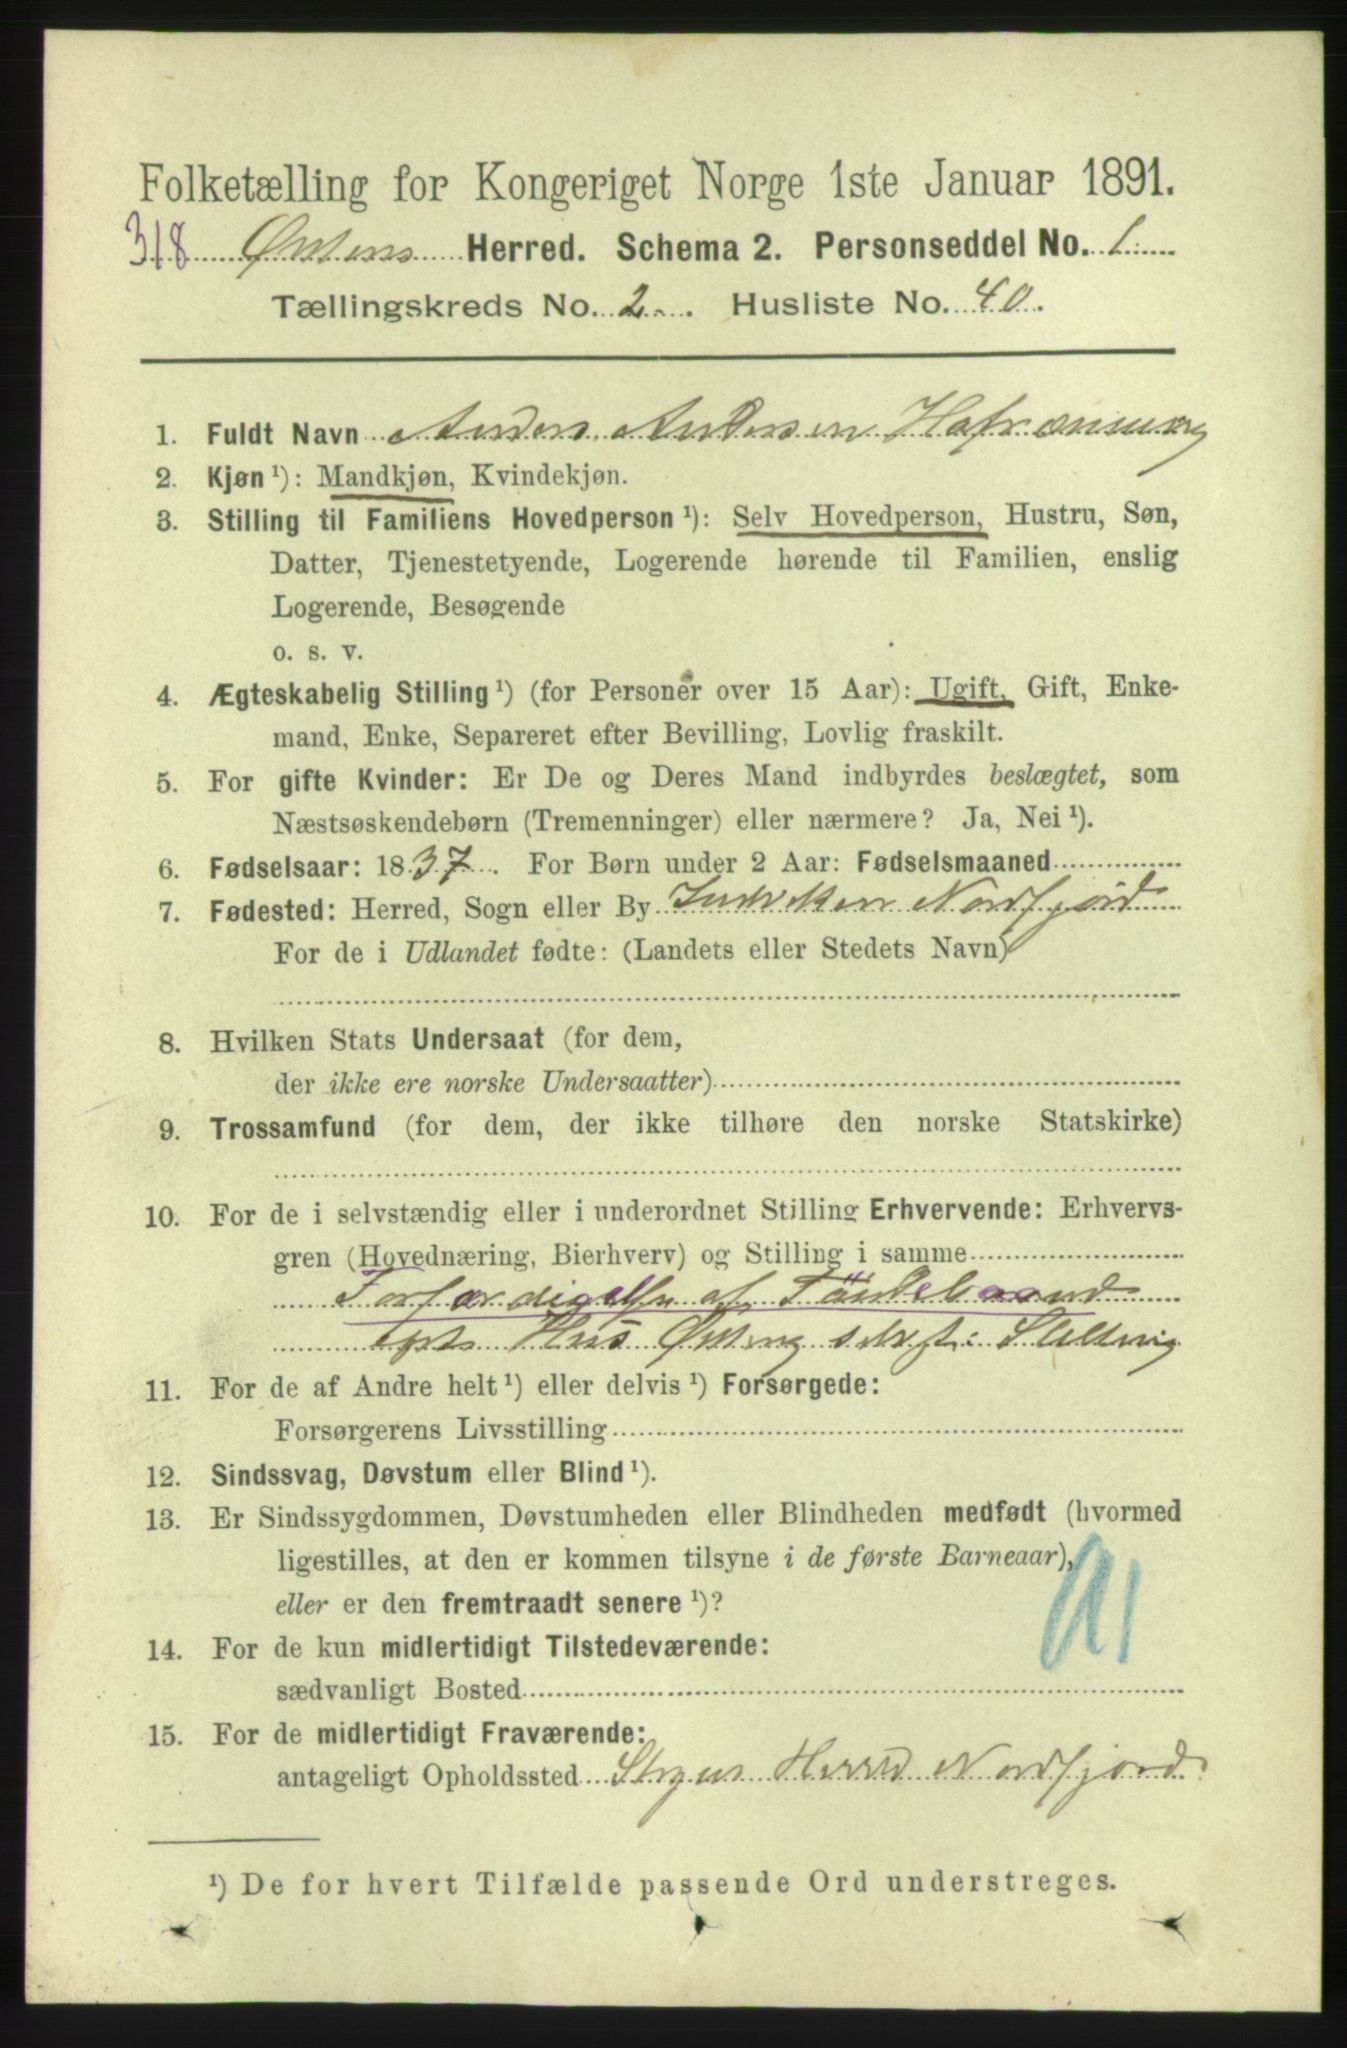 Folketælling for Kongeriget Norge 1ste Januar 1891.
318 Herred. Schema 2. Personseddel No. 1
Tællingskreds No. 2. Husliste No. 40.
1. Fuldt Navn Anders Andersen
2. Kjøn ¹): Mandkjøn, Kvindekjøn.
3. Stilling til Familiens Hovedperson ¹): Selv Hovedperson, Hustru, Søn,
Datter, Tjenestetyende, Logerende hørende til Familien, enslig
Logerende, Besøgende
o. s. v.
4. Ægteskabelig Stilling ¹) (for Personer over 15 Aar): Ugift, Gift, Enke-
mand, Enke, Separeret efter Bevilling, Lovlig fraskilt.
5. For gifte Kvinder: Er De og Deres Mand indbyrdes beslægtet, som
Næstsøskendebørn (Tremenninger) eller nærmere? Ja, Nei ¹).
6. Fødselsaar: 1837. For Børn under 2 Aar: Fødselsmaaned
7. Fødested: Herred, Sogn eller By Indviken Nordfjord
For de i Udlandet fødte: (Landets eller Stedets Navn)
8. Hvilken Stats Undersaat (for dem,
der ikke ere norske Undersaatter)
9. Trossamfund (for dem, der ikke tilhøre den norske Statskirke)
10. For de i selvstændig eller i underordnet Stilling Erhvervende: Erhvervs-
gren (Hovednæring, Bierhverv) og Stilling i samme
Forfærdigelse af Töndebaand
Hus selvst: Stilling
11. For de af Andre helt ¹) eller delvis ¹) Forsørgede:
Forsørgerens Livsstilling
12. Sindssvag, Døvstum eller Blind ¹).
13. Er Sindssygdommen, Døvstumheden eller Blindheden medfødt (hvormed
ligestilles, at den er kommen tilsyne i de første Barneaar),
eller er den fremtraadt senere ¹)?
14. For de kun midlertidigt Tilstedeværende:
sædvanligt Bosted
15. For de midlertidigt Fraværende:
antageligt Opholdssted Stryns Herred Nordfjord
¹) De for hvert Tilfælde passende Ord understreges.